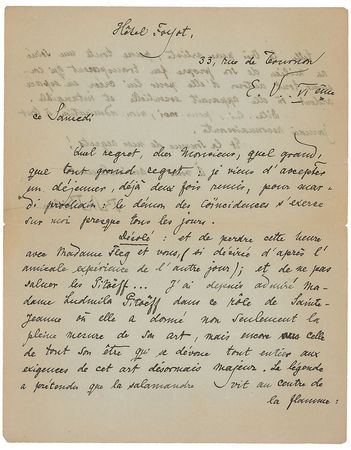 Hôtel Foyot,
33, rue de Tournon
E. V. VIème
ce Samedi
Quel regret, cher Monsieur, quel grand,
que tout grand regret : je viens d'accepter
un déjeuner, déjà deux fois remis, pour mar-
di prochain : le démon des Coïncidences s'exerce
sur moi presque tous les jours.
Désolé : et de perdre cette heure
avec Madame Fleg et vous, (si désirée d'après l'
amicale expérience de l'autre jour) ; et de ne pas
saluer les Pitoëff... J'ai depuis admiré Ma-
dame Ludmila Pitoëff dans ce rôle de Sainte-
Jeanne où elle a donné non seulement la
pleine mesure de son art, mais encore celle
de tout son être qui se dévoue tout entier aux
exigences de cet art désormais majeur. La légende
a prétendu que la salamandre vit au centre de
la flamme :